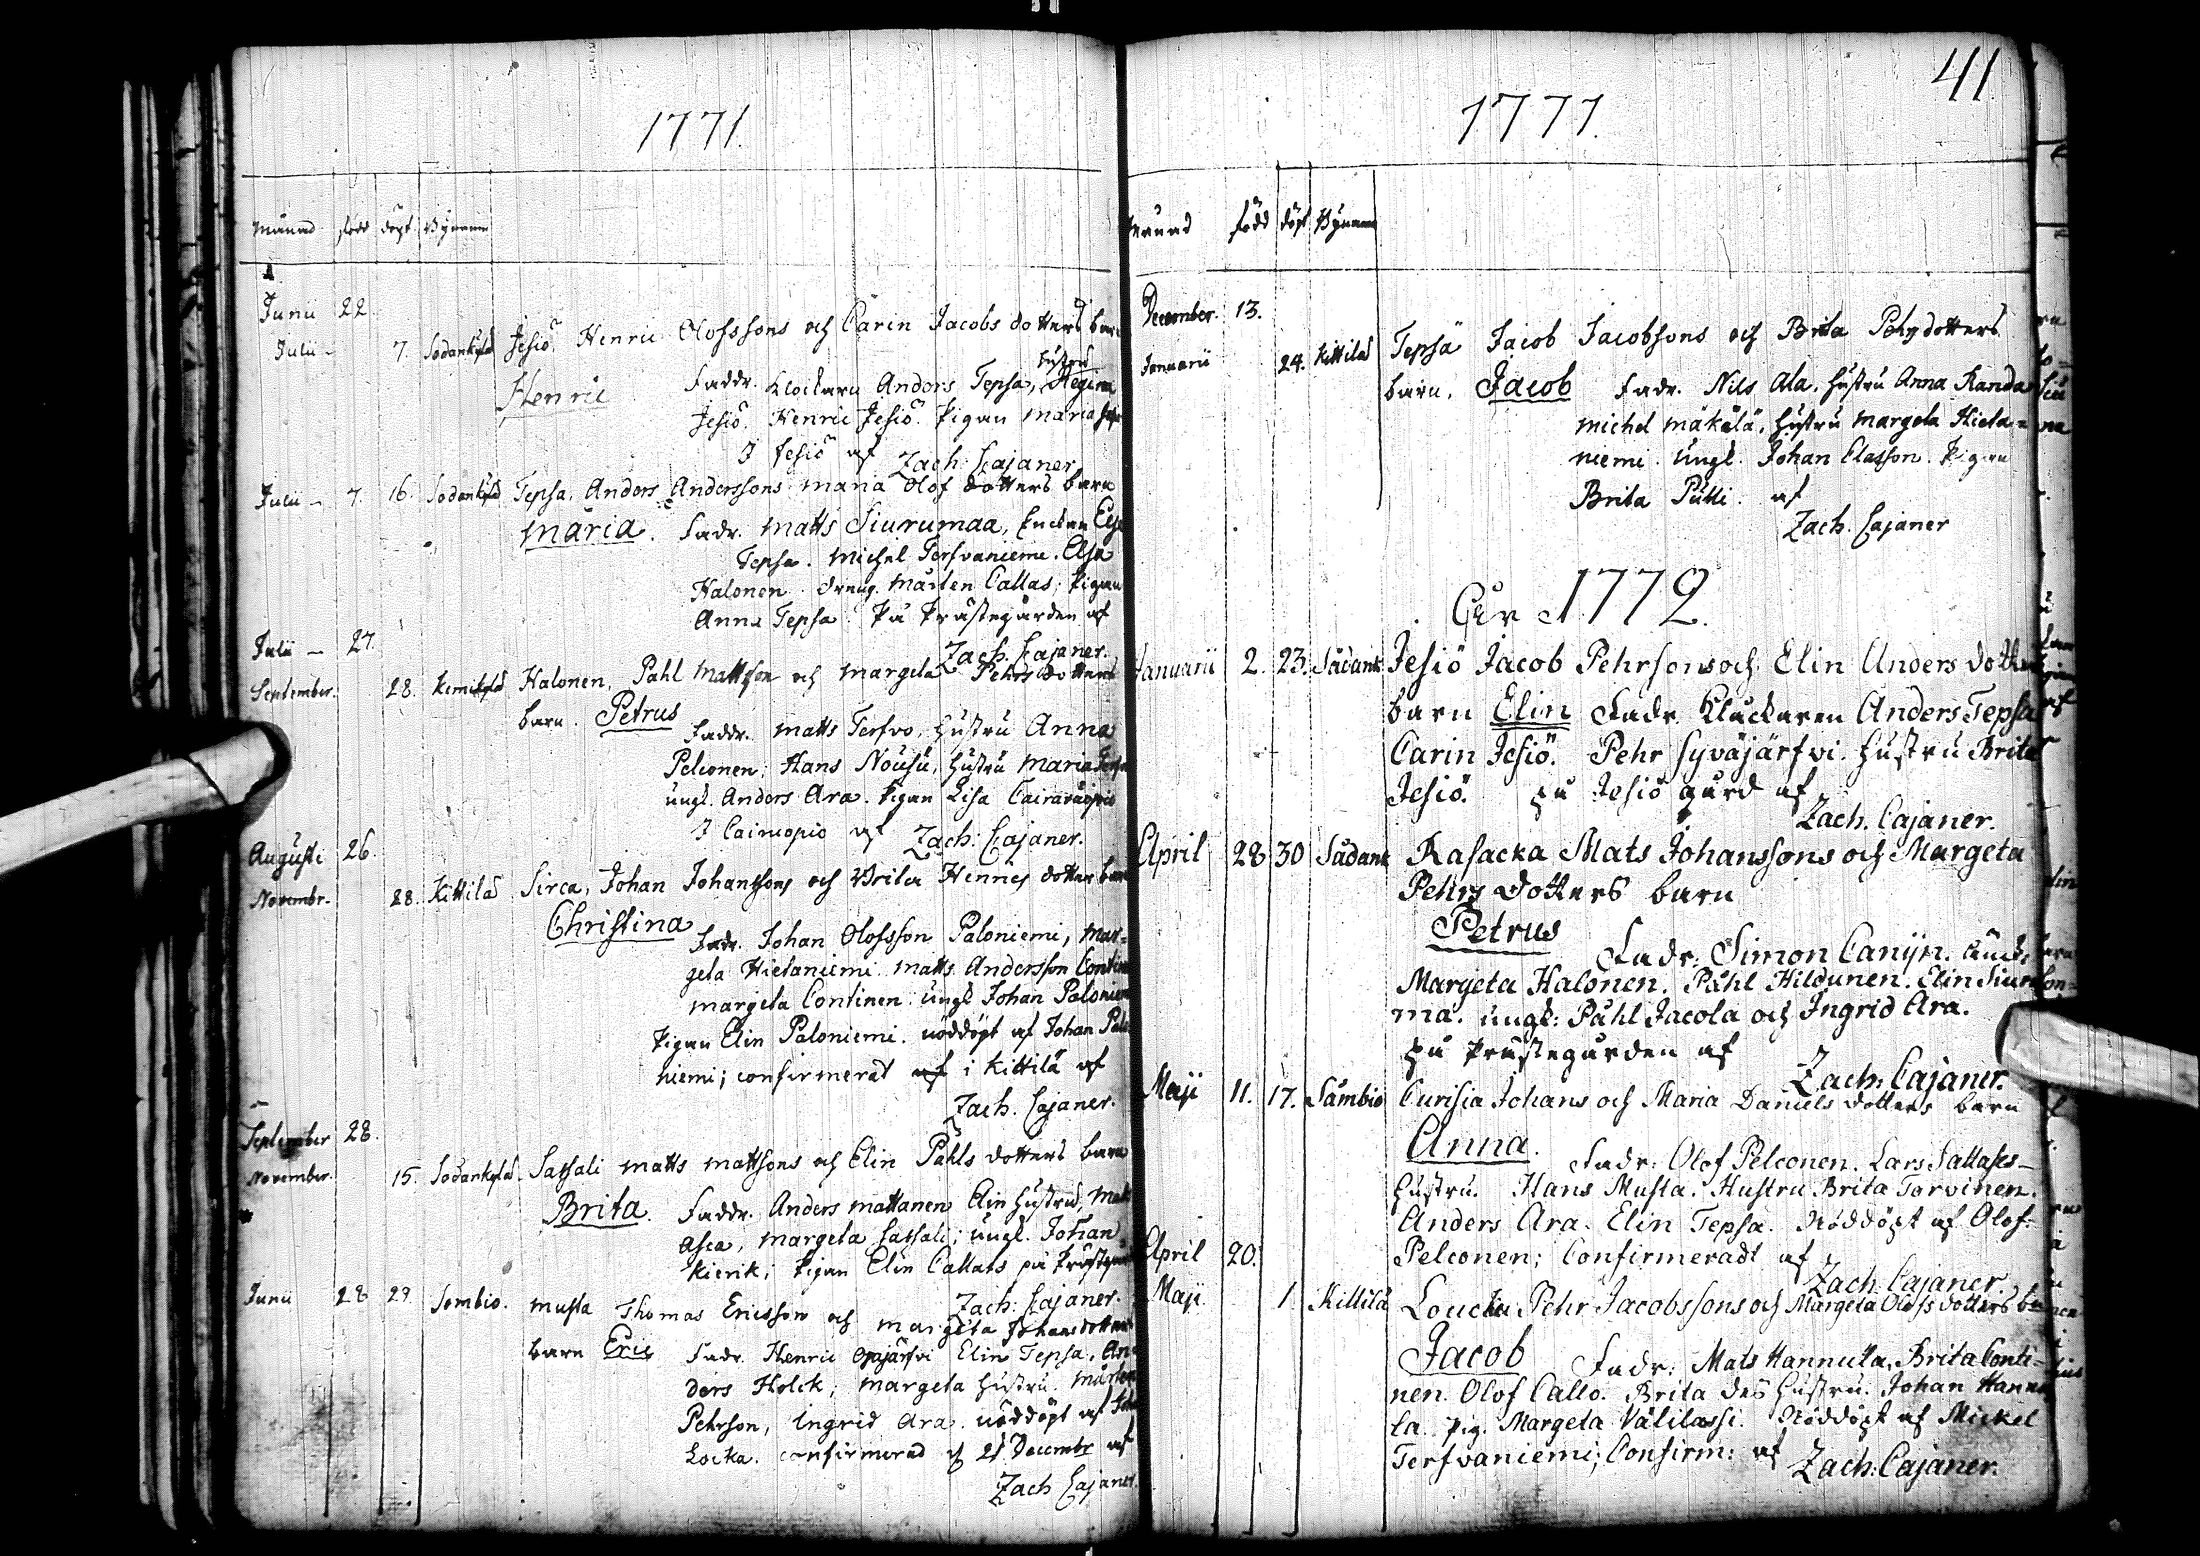 1771.
månad född döpt Bynamn
Junii 22
Julii - 7. Sodankylä Jesiö Henric Olofssons och Carin Jacobs dotters barn
Henric Faddr. Klockaren Anders Tepsa, hustru Regina
Jesiö. Henric Jesiö. Pigan Maria
I Jesiö af Zach: Cajaner
Julii - 7. 16. Sodankylä Tepsa, Anders Anderssons Maria Olof dotters barn
Maria. Fadr. Matts Siurumaa, Enckan
Tepsa. Michel Terfvaniemi. Elsa
Halonen. dreng. Mårten Callas; Pigan
Anna Tepsa. På Prästegården af
Zach. Cajaner.
Julii - 27.
September. 28. Kemikylä Halonen, Påhl Mattson och Margeta Pehrs dotters
barn. Petrus
Faddr. Matts Terfvo, hustru Anna
Pelconen; Hans Nousu, hustru Maria
ungl. Anders Ara. Pigan Lisa
I Cairuopio af Zach: Cajaner.
Augusti 26.
Novembr. 28. Kittilä Sirca, Johan Johanssons och Brita Hennes dotters barn
Christina
Fadr. Johan Olofsson Paloniemi, Mar-
geta Hietaniemi Matts Andersson
Margeta Continen. ungl Johan Paloniemi
Pigan Elin Paloniemi. nöddöpt af Johan Palo
niemi; confirmerat af i Kittilä af
Zach. Cajaner.
September 28.
November. 15. Sodankylä. Sassali Matts Mattsons och Elin Påhls dotters barn
Brita. Faddr. Anders Mattanen Elin hustru,
Asca, Margeta Sassali; ungl. Johan
Kierik; Pigan Elin Callas på Prästegården
Zach: Cajaner.
Junii 28 29 Sombio. Musta Thomas Ericsson och Margeta Johansdotters
barn Eric Fadr. Henric Ojajärfvi Elin Tepsa. An-
ders Holck; Margeta hustru. Mårten
Pehrson, Ingrid Ara. nöddöpt af
Locka. confirmerad d 21 Decembr af
Zach Cajaner.
41
1771.
månad född döpt Bynamn
December. 13.
Januarii 24. Kittilä Tepsä Jacob Jacobsons och Brita Pehrsdotters
barn. Jacob Fadr. Nils Ala. hustru Anna Randa
Michel Mäkälä, hustru Margeta Hieta-
niemi. Ungl. Johan Classon. Pigan
Brita Pulli. af
Zach. Cajaner
1772.
Januarii 2. 23. Sådank Jesiö Jacob Pehrsons och Elin Anders dotters
barn Elin Fadr. Kluckaren Anders Tepsa
Carin Jesiö. Pehr Syväjärfvi. hustru Brita
Jesiö. på Jesiö gård af
Zach. Cajaner.
April 28 30 Sådank Rasacka Mats Johanssons och Margeta
Pehrs dotters barn
Petrus
Fadr: Simon Canijn.
Margeta Halonen. Påhl Hildunen. Elin Siuru
ma. ungk: Påhl Jacola och Ingrid Ara.
på Prästegården af
Zach: Cajaner.
Maji 11. 17. Såmbio Curisia Johans och Maria Daniels dotters barn
Anna. Fadr: Olof Pelconen. Lars Sattases
hustru. Hans Musta. Hustru Brita Torvinen.
Anders Ara. Elin Tepsa. Nöddöpt af Olof
Pelconen; Confirmeradt af
Zach. Cajaner.
April 20.
Maji 1 Kittilä Loucku Pehr Jacobssons och Margeta Olofs dotters barn
Jacob Fadr: Mats Hannuka, Brita Conti-
nen. Olof Callo. Brita des hustru. Johan Hannu
la. Pig. Margeta Välilassi. Nöddöpt af Mickel
Terfvaniemi; Confirm: af Zach: Cajaner.